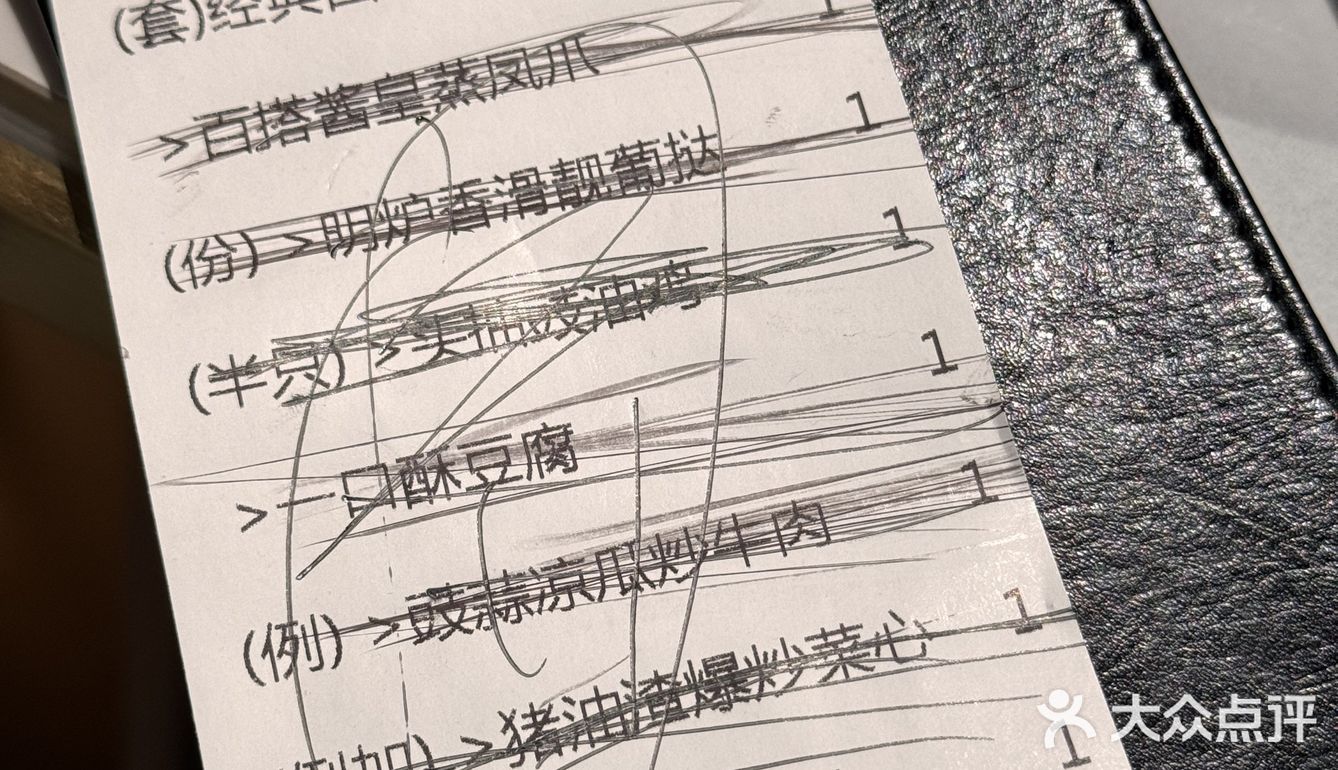 (套)经典
1
>百搭酱皇蒸凤爪
1
(份) >明炉香滑靓葡挞
1
(半只) >豉油鸡
1
>一口酥豆腐
1
(例) >豉蒜凉瓜炒牛肉
1
(例加) >猪油渣爆炒菜心
1
大众点评